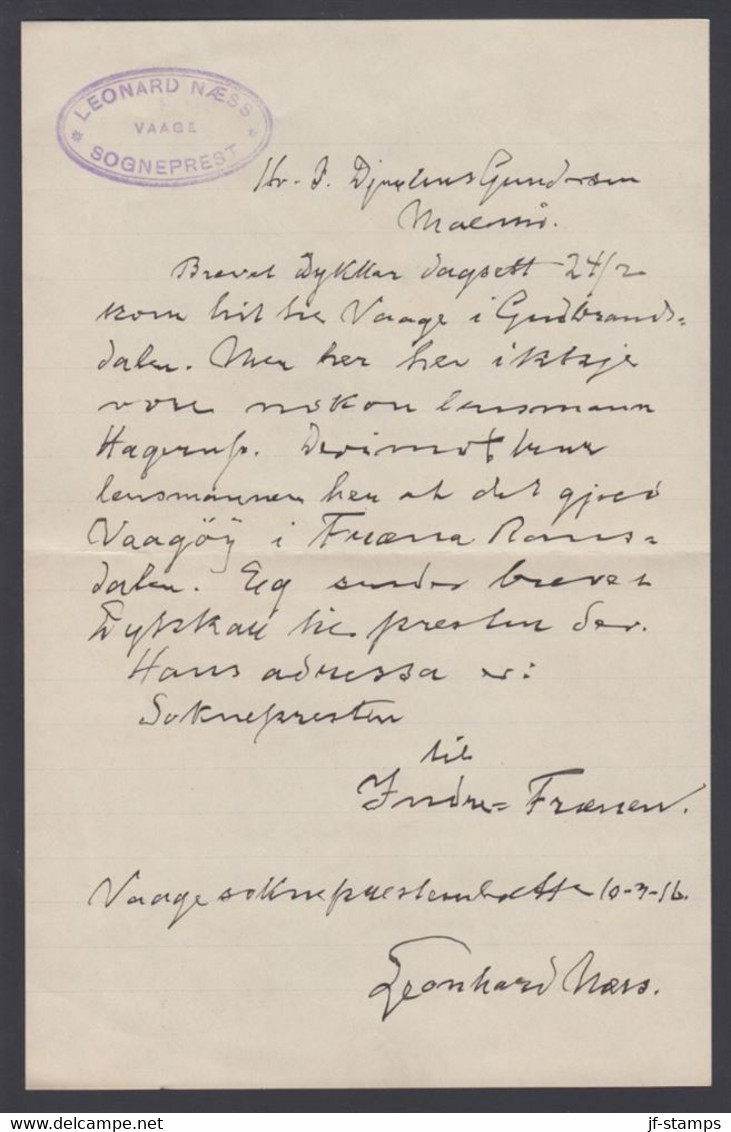 LEONARD NÆSS
VAAGE
SOGNEPREST
Hr. J. Gundersen
Malmö.
Brevet Dykkar dagsett 24/2
kom hit til Vaage i Gudbrands=
dalen. Men her her ikkje
vore nokon lensmann
Hagerup. Derimot trur
lensmannen her at det gjeld
Vaagöy i Fræna Roms=
dalen. Eg sender brevet
Dykkar til presten der.
Hans adressa er:
Soknepresten
til
Indre= Frænen.
Vaage sokneprestembætte 10-3-16.
Leonhard Næss.
jf-stamps
delcampe.net